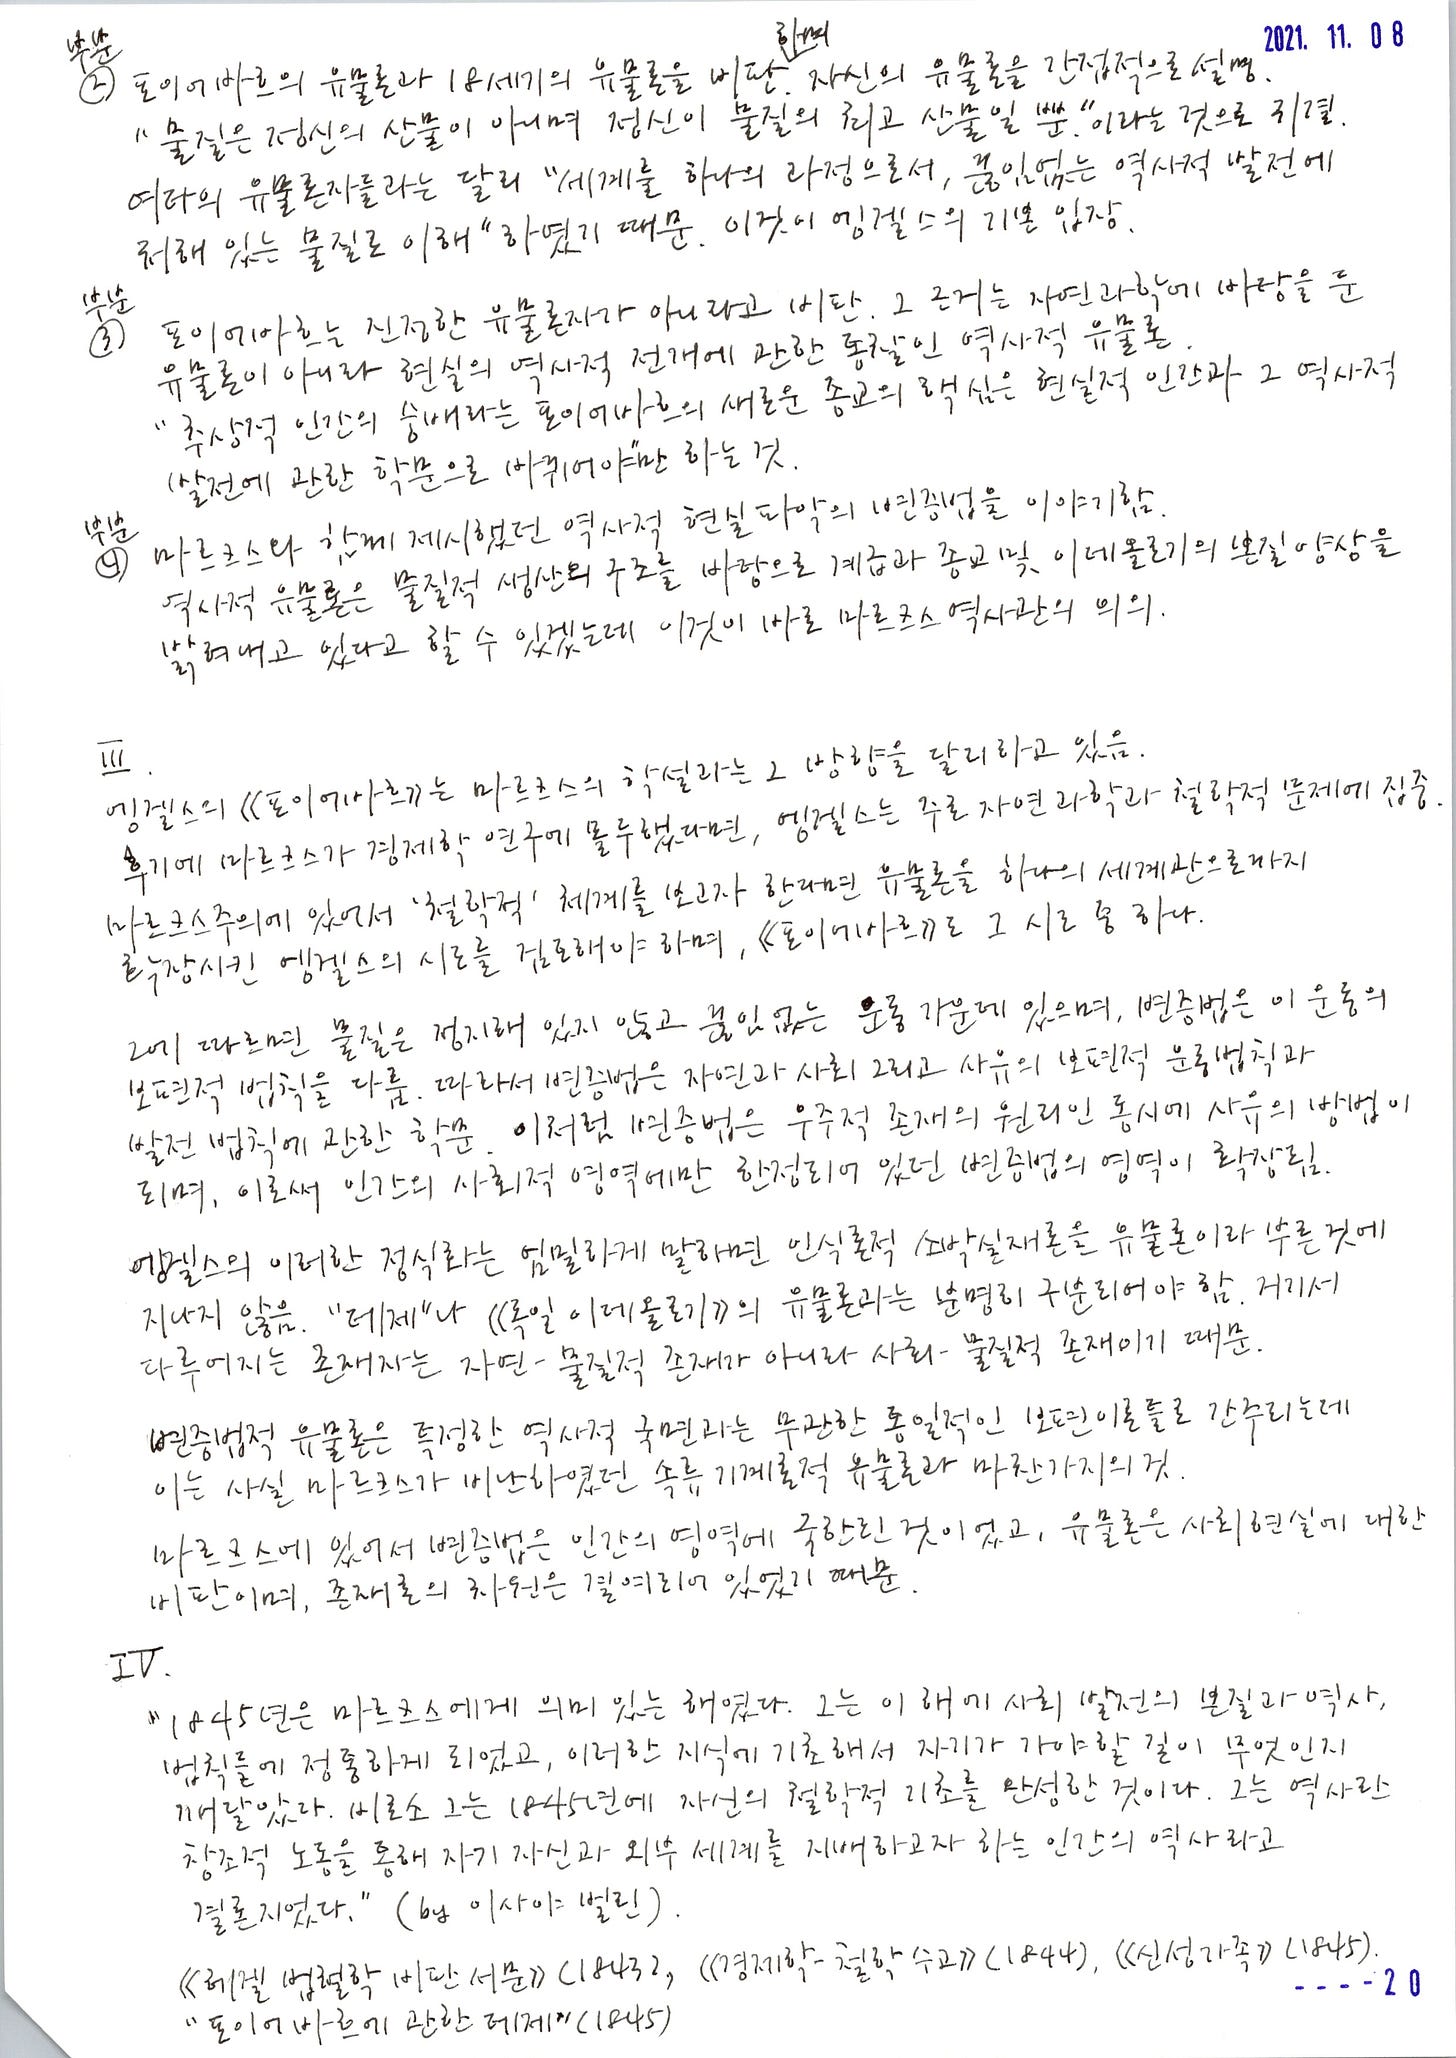 2021. 11. 08
부분 하며
② 포이에바흐의 유물론과 18세기의 유물론을 비판. 자신의 유물론을 간접적으로 설명.
"물질은 정신의 산물이 아니며 정신이 물질의 최고 산물일 뿐."이라는 것으로 귀결.
여타의 유물론자들과는 달리 "세계를 하나의 과정으로서, 끊임없는 역사적 발전에
처해 있는 물질로 이해"하였기 때문. 이것이 엥겔스의 기본 입장.
부분
③ 포이에바흐는 진정한 유물론자가 아니라고 비판. 그 근거는 자연과학에 바탕을 둔
유물론이 아니라 현실의 역사적 전개에 관한 통찰인 역사적 유물론.
"추상적 인간의 숭배라는 포이어바흐의 새로운 종교의 핵심은 현실적 인간과 그 역사적
발전에 관한 학문으로 바뀌어야"만 하는 것.
부분
④ 마르크스와 함께 제시했던 역사적 현실파악의 변증법을 이야기함.
역사적 유물론은 물질적 생산의 구조를 바탕으로 계급과 종교 및 이데올로기의 본질 양상을
밝혀내고 있다고 할 수 있겠는데 이것이 바로 마르크스 역사관의 의의.
III.
엥겔스의 《포이에바흐》는 마르크스의 학설과는 그 방향을 달리하고 있음.
후기에 마르크스가 경제학 연구에 몰두했다면, 엥겔스는 주로 자연과학과 철학적 문제에 집중.
마르크스주의에 있어서 '철학적' 체계를 보고자 한다면 유물론을 하나의 세계관으로까지
확장시킨 엥겔스의 시도를 검토해야 하며, 《포이에바흐》도 그 시도 중 하나.
그에 따르면 물질은 정지해 있지 않고 끊임없는 운동 가운데 있으며, 변증법은 이 운동의
보편적 법칙을 다룸. 따라서 변증법은 자연과 사회 그리고 사유의 보편적 운동법칙과
발전 법칙에 관한 학문. 이처럼 변증법은 우주적 존재의 원리인 동시에 사유의 방법이
되며, 이로써 인간의 사회적 영역에만 한정되어 있던 변증법의 영역이 확장됨.
엥겔스의 이러한 정식화는 엄밀하게 말하면 인식론적 소박실재론을 유물론이라 부른 것에
지나지 않음. "테제"나 《독일 이데올로기》의 유물론과는 분명히 구분되어야 함. 거기서
다루어지는 존재자는 자연-물질적 존재가 아니라 사회-물질적 존재이기 때문.
변증법적 유물론은 특정한 역사적 국면과는 무관한 통일적인 보편이론들로 간주되는데
이는 사실 마르크스가 비난하였던 속류 기계론적 유물론과 마찬가지의 것.
마르크스에 있어서 변증법은 인간의 영역에 국한된 것이었고, 유물론은 사회현실에 대한
비판이며, 존재론의 차원은 결여되어 있었기 때문.
IV.
"1845년은 마르크스에게 의미 있는 해였다. 그는 이 해에 사회 발전의 본질과 역사,
법칙들에 정통하게 되었고, 이러한 지식에 기초해서 자기가 가야할 길이 무엇인지
깨달았다. 비로소 그는 1845년에 자신의 철학적 기초를 완성한 것이다. 그는 역사란
창조적 노동을 통해 자기 자신과 외부 세계를 지배하고자 하는 인간의 역사라고
결론지었다." (by 이사야 벌린).
《헤겔 법철학 비판 서문》(1843), 《경제학-철학 수고》(1844), 《신성가족》(1845).
"포이어바흐에 관한 테제"(1845)
----20